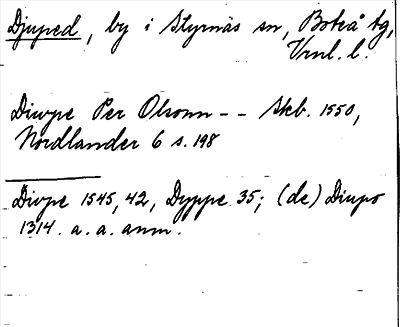 Djuped, by i Styrnäs sn, Boteå tg,
Vrnl. l.
Diwpe Per Olsonn - - Skb. 1550,
Nordlander 6 s. 198
Divpe 1545, 42, Dyppe 35; (de) Diupo
1314. a. a. anm.